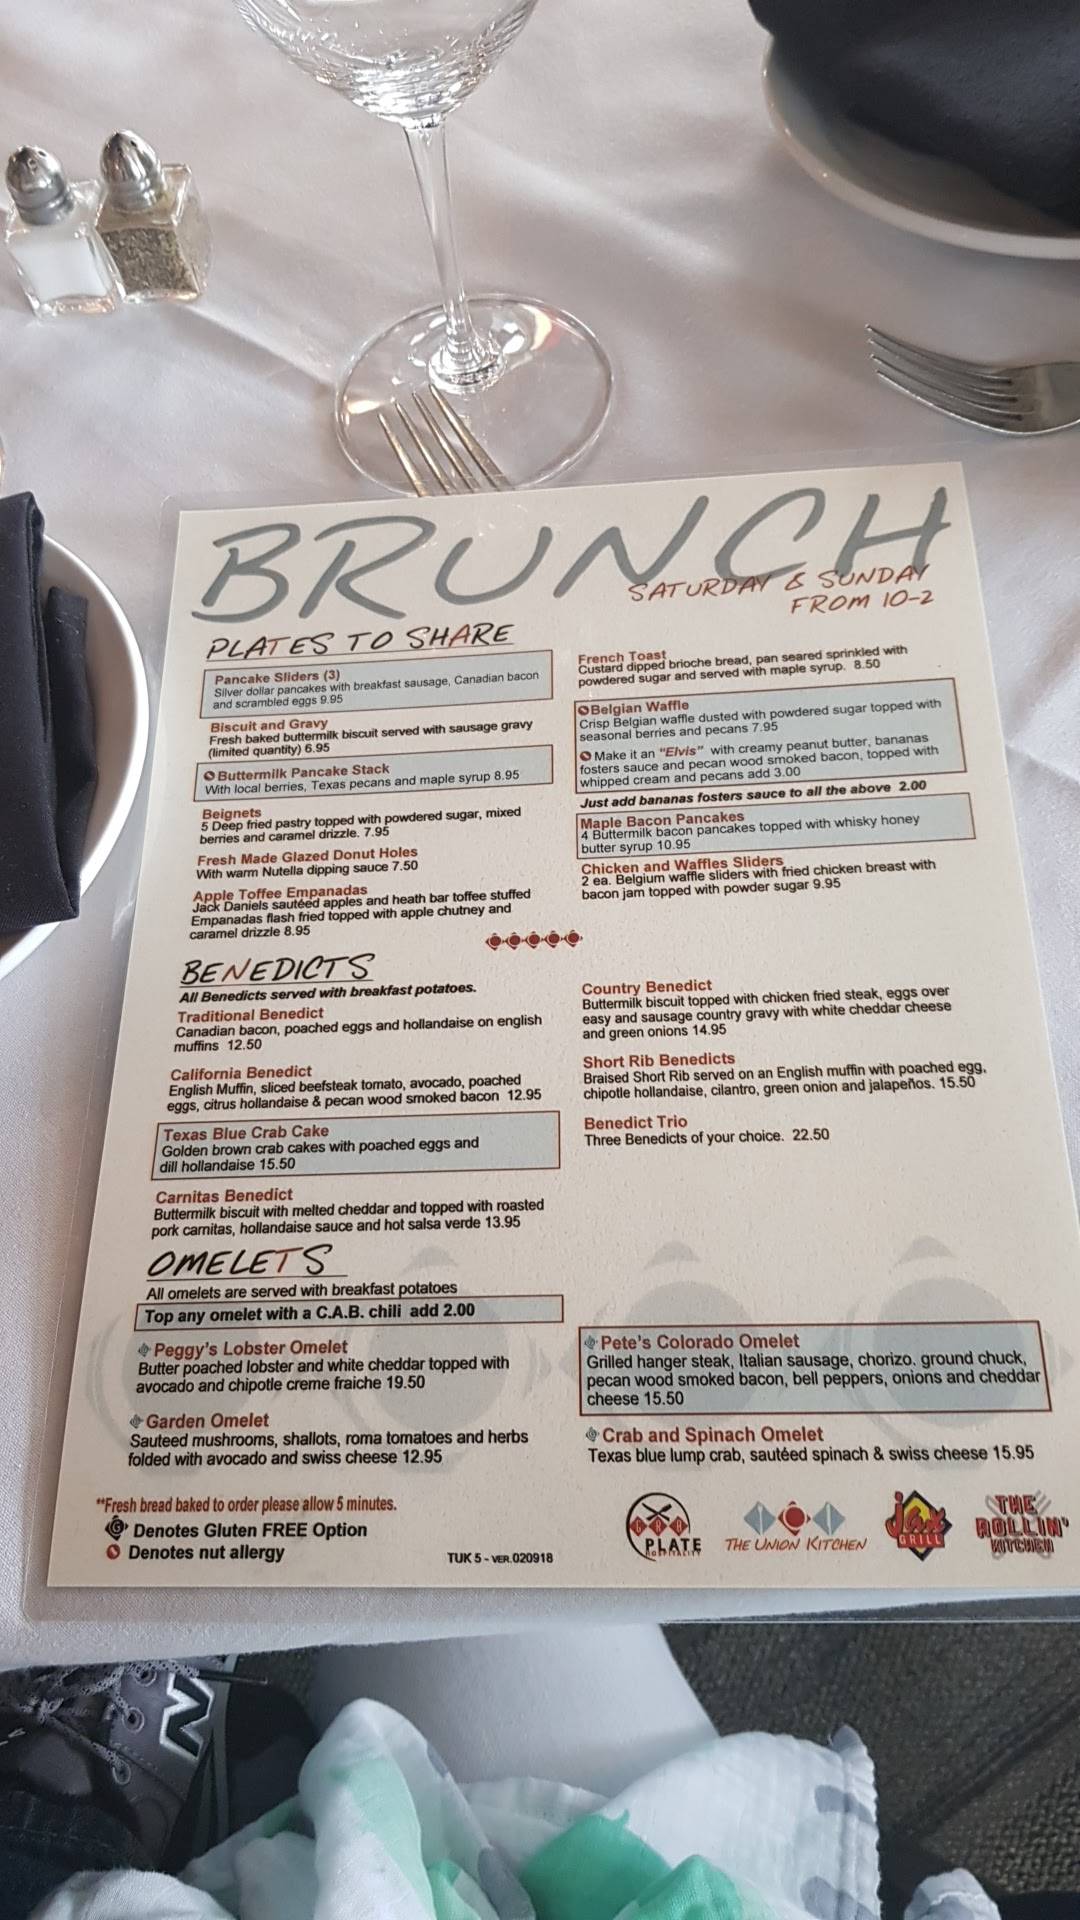 BRUNCH
SATURDAY & SUNDAY
FROM 10-2
PLATES TO SHARE
Pancake Sliders (3)
Silver dollar pancakes with breakfast sausage, Canadian bacon
and scrambled eggs 9.95
Biscuit and Gravy
Fresh baked buttermilk biscuit served with sausage gravy
(limited quantity) 6.95
Buttermilk Pancake Stack
With local berries, Texas pecans and maple syrup 8.95
Beignets
5 Deep fried pastry topped with powdered sugar, mixed
berries and caramel drizzle. 7.95
Fresh Made Glazed Donut Holes
With warm Nutella dipping sauce 7.50
Apple Toffee Empanadas
Jack Daniels sautéed apples and heath bar toffee stuffed
Empanadas flash fried topped with apple chutney and
caramel drizzle 8.95
French Toast
Custard dipped brioche bread, pan seared sprinkled with
powdered sugar and served with maple syrup. 8.50
Belgian Waffle
Crisp Belgian waffle dusted with powdered sugar topped with
seasonal berries and pecans 7.95
Make it an "Elvis" with creamy peanut butter, bananas
fosters sauce and pecan wood smoked bacon, topped with
whipped cream and pecans add 3.00
Just add bananas fosters sauce to all the above 2.00
Maple Bacon Pancakes
4 Buttermilk bacon pancakes topped with whisky honey
butter syrup 10.95
Chicken and Waffles Sliders
2 ea. Belgium waffle sliders with fried chicken breast with
bacon jam topped with powder sugar 9.95
BENEDICTS
All Benedicts served with breakfast potatoes.
Traditional Benedict
Canadian bacon, poached eggs and hollandaise on english
muffins 12.50
California Benedict
English Muffin, sliced beefsteak tomato, avocado, poached
eggs, citrus hollandaise & pecan wood smoked bacon 12.95
Texas Blue Crab Cake
Golden brown crab cakes with poached eggs and
dill hollandaise 15.50
Carnitas Benedict
Buttermilk biscuit with melted cheddar and topped with roasted
pork carnitas, hollandaise sauce and hot salsa verde 13.95
Country Benedict
Buttermilk biscuit topped with chicken fried steak, eggs over
easy and sausage country gravy with white cheddar cheese
and green onions 14.95
Short Rib Benedicts
Braised Short Rib served on an English muffin with poached egg,
chipotle hollandaise, cilantro, green onion and jalapeños. 15.50
Benedict Trio
Three Benedicts of your choice. 22.50
OMELETS
All omelets are served with breakfast potatoes
Top any omelet with a C.A.B. chili add 2.00
Peggy's Lobster Omelet
Butter poached lobster and white cheddar topped with
avocado and chipotle creme fraiche 19.50
Garden Omelet
Sauteed mushrooms, shallots, roma tomatoes and herbs
folded with avocado and swiss cheese 12.95
Pete's Colorado Omelet
Grilled hanger steak, Italian sausage, chorizo. ground chuck,
pecan wood smoked bacon, bell peppers, onions and cheddar
cheese 15.50
Crab and Spinach Omelet
Texas blue lump crab, sautéed spinach & swiss cheese 15.95
**Fresh bread baked to order please allow 5 minutes.
G Denotes Gluten FREE Option
Denotes nut allergy
TUK 5 - VER.020918
PLATE
HOSPITALITY
THE UNION KITCHEN
Jax
GRILL
THE
ROLLIN'
KITCHEN
N